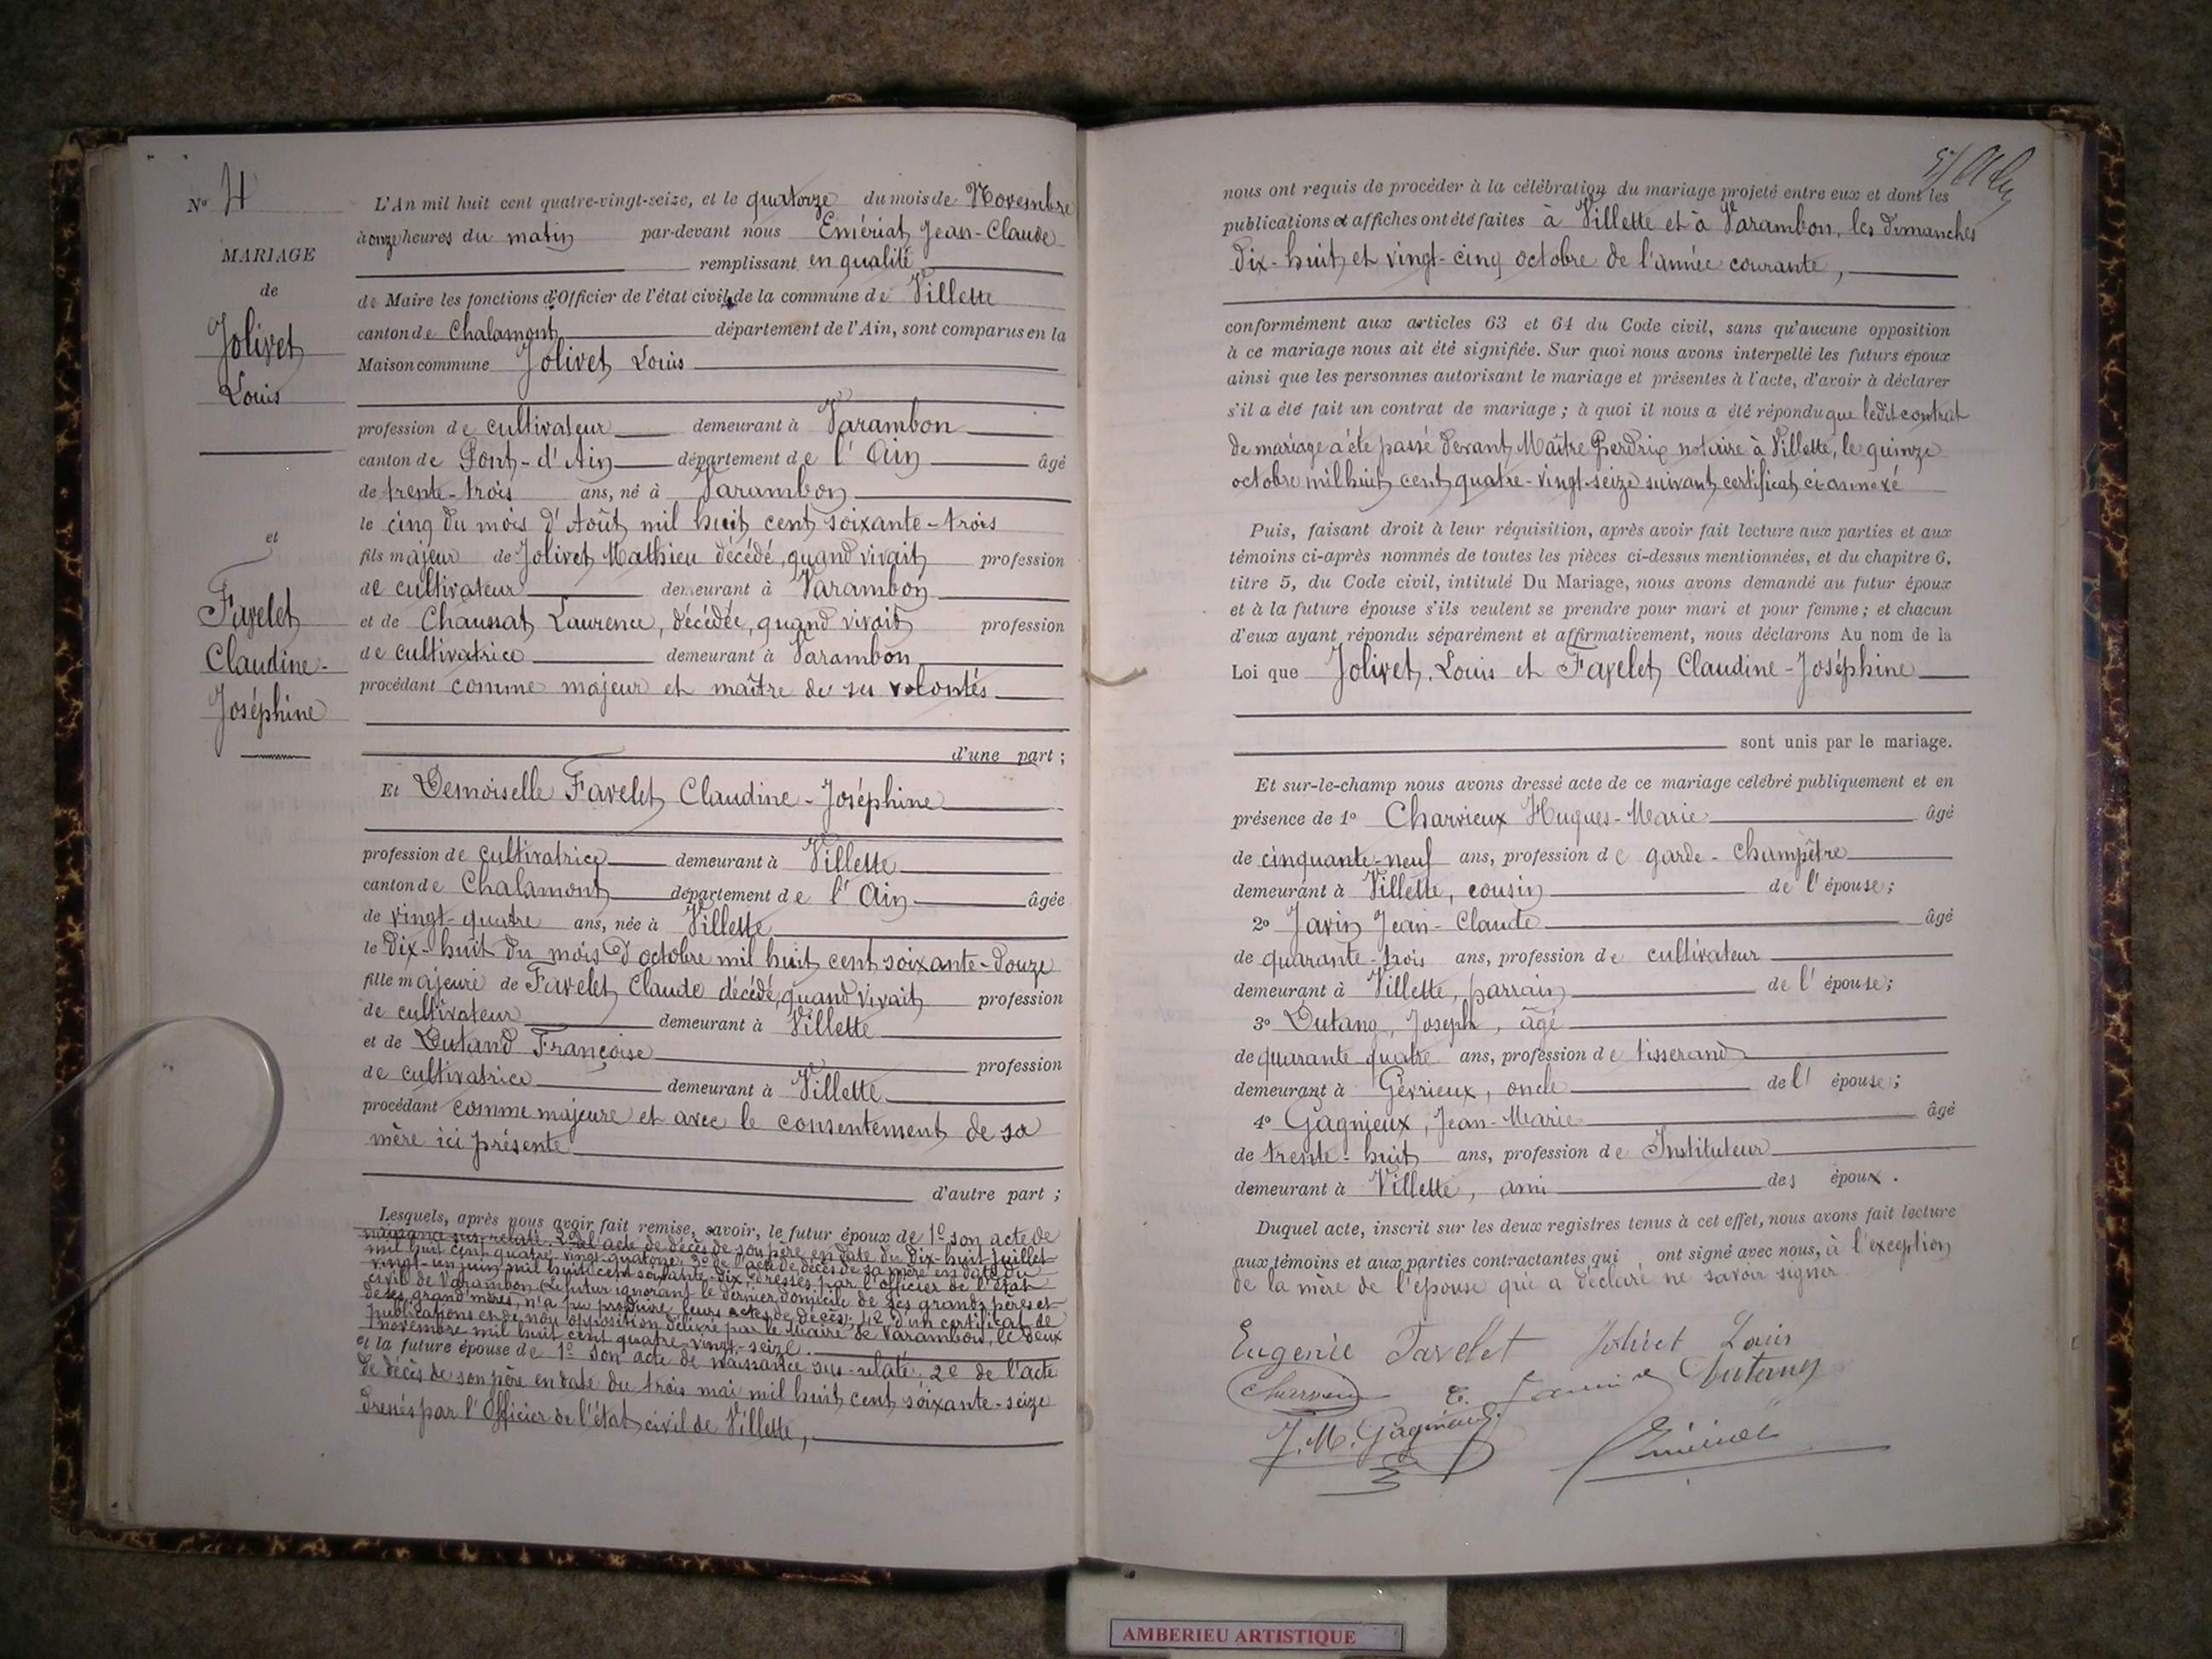 No 4
MARIAGE
de
Jolivet
Louis
et
Favelet
Claudine-
Joséphine
L'An mil huit cent quatre-vingt-seize, et le quatorze du mois de Novembre
à onze heures du matin par-devant nous Emériat Jean-Claude
remplissant en qualité
de Maire les fonctions d'Officier de l'état civil de la commune de Villette
canton de Chalamont département de l'Ain, sont comparus en la
Maison commune Jolivet Louis
profession de cultivateur demeurant à Varambon
canton de Pont-d'Ain département de l'Ain âgé
de trente-trois ans, né à Varambon
le cinq du mois d'Août mil huit cent soixante-trois
fils majeur de Jolivet Mathieu décédé, quand vivait profession
de cultivateur demeurant à Varambon
et de Chaussat Laurence, décédée, quand vivait profession
de cultivatrice demeurant à Varambon
procédant comme majeur et maître de ses volontés
d'une part ;
Et Demoiselle Favelet Claudine-Joséphine
profession de cultivatrice demeurant à Villette
canton de Chalamont département de l'Ain âgée
de vingt-quatre ans, née à Villette
le dix-huit du mois d'octobre mil huit cent soixante-douze
fille majeure de Favelet Claude décédé, quand vivait profession
de cultivateur demeurant à Villette
et de Dutand Françoise profession
de cultivatrice demeurant à Villette
procédant comme majeure et avec le consentement de sa
mère ici présente
d'autre part ;
Lesquels, après nous avoir fait remise, savoir, le futur époux de 1º son acte de
naissance sus-relaté. 2º de l'acte de décès de son père en date du dix-huit juillet
mil huit cent quatre-vingt-quatorze, 3º de l'acte de décès de sa mère en date du
vingt-un juin mil huit cent soixante-dix, dressés par l'officier de l'état
civil de Varambon (Le futur ignorant le dernier domicile de ses grands pères et
de ses grand'mères, n'a pu produire leurs actes de décès); 4º d'un certificat de
publications et de non opposition délivré par le Maire de Varambon, le deux
novembre mil huit cent quatre-vingt-seize.
et la future épouse de 1º son acte de naissance sus-relaté; 2º de l'acte
de décès de son père en date du trois mai mil huit cent soixante-seize
dressés par l'Officier de l'état civil de Villette,
nous ont requis de procéder à la célébration du mariage projeté entre eux et dont les
publications et affiches ont été faites à Villette et à Varambon, les dimanches
dix-huit et vingt-cinq octobre de l'année courante,
conformément aux articles 63 et 64 du Code civil, sans qu'aucune opposition
à ce mariage nous ait été signifiée. Sur quoi nous avons interpellé les futurs époux
ainsi que les personnes autorisant le mariage et présentes à l'acte, d'avoir à déclarer
s'il a été fait un contrat de mariage ; à quoi il nous a été répondu que ledit contrat
de mariage a été passé devant Maître Perdrix notaire à Villette, le quinze
octobre mil huit cent quatre-vingt-seize suivant certificat ci-annexé
Puis, faisant droit à leur réquisition, après avoir fait lecture aux parties et aux
témoins ci-après nommés de toutes les pièces ci-dessus mentionnées, et du chapitre 6,
titre 5, du Code civil, intitulé Du Mariage, nous avons demandé au futur époux
et à la future épouse s'ils veulent se prendre pour mari et pour femme ; et chacun
d'eux ayant répondu séparément et affirmativement, nous déclarons Au nom de la
Loi que Jolivet, Louis et Favelet Claudine-Joséphine
sont unis par le mariage.
Et sur-le-champ nous avons dressé acte de ce mariage célébré publiquement et en
présence de 1º Charvieux Hugues-Marie âgé
de cinquante-neuf ans, profession de garde-champêtre
demeurant à Villette, cousin de l'épouse ;
2º Javin Jean-Claude âgé
de quarante-trois ans, profession de cultivateur
demeurant à Villette, parrain de l'épouse ;
3º Dutang, Joseph, âgé
de quarante quatre ans, profession de tisserand
demeurant à Gévrieux, oncle de l'épouse ;
4º Gagnieux, Jean-Marie âgé
de trente-huit ans, profession de Instituteur
demeurant à Villette, ami des époux.
Duquel acte, inscrit sur les deux registres tenus à cet effet, nous avons fait lecture
aux témoins et aux parties contractantes qui ont signé avec nous, à l'exception
de la mère de l'épouse qui a déclaré ne savoir signer.
Eugenie Favelet Jolivet Louis
Dutang
J. M. Gagnieux
Emériat
AMBERIEU ARTISTIQUE